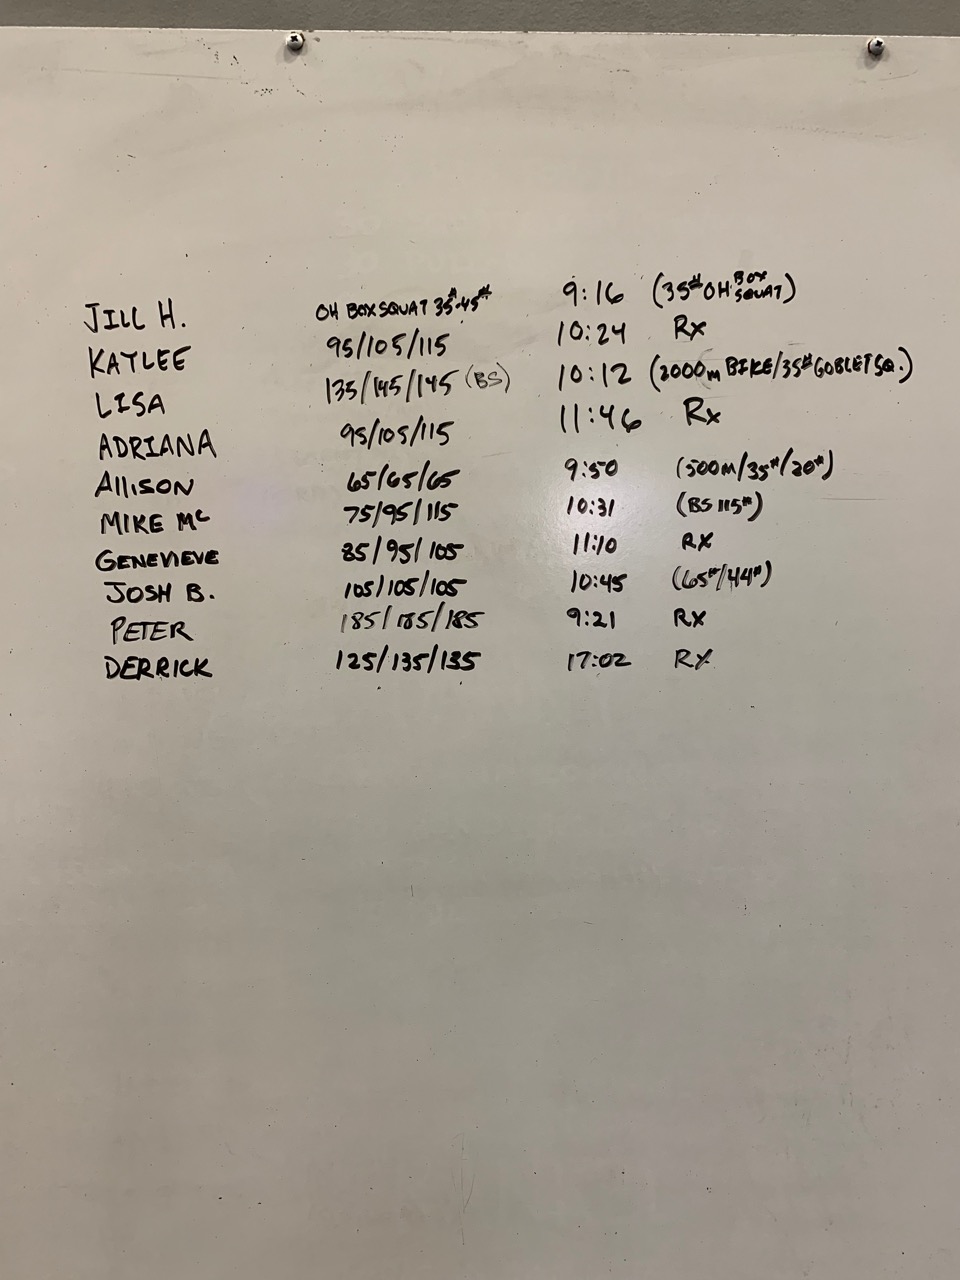 JILL H. OH BOX SQUAT 35#-45# 9:16 (35# OH BOX SQUAT)
KAYLEE 95/105/115 10:24 Rx
LISA 135/145/145 (BS) 10:12 (2000m BIKE/35# GOBLET SQ.)
ADRIANA 95/105/115 11:46 Rx
AlliSON 65/65/65 9:50 (500M/35#/20#)
MIKE Mc 75/95/115 10:31 (BS 115#)
GENEVIEVE 85/95/105 11:10 RX
JOSH B. 105/105/105 10:45 (65#/44#)
PETER 185/185/185 9:21 RX
DERRICK 125/135/135 17:02 RX